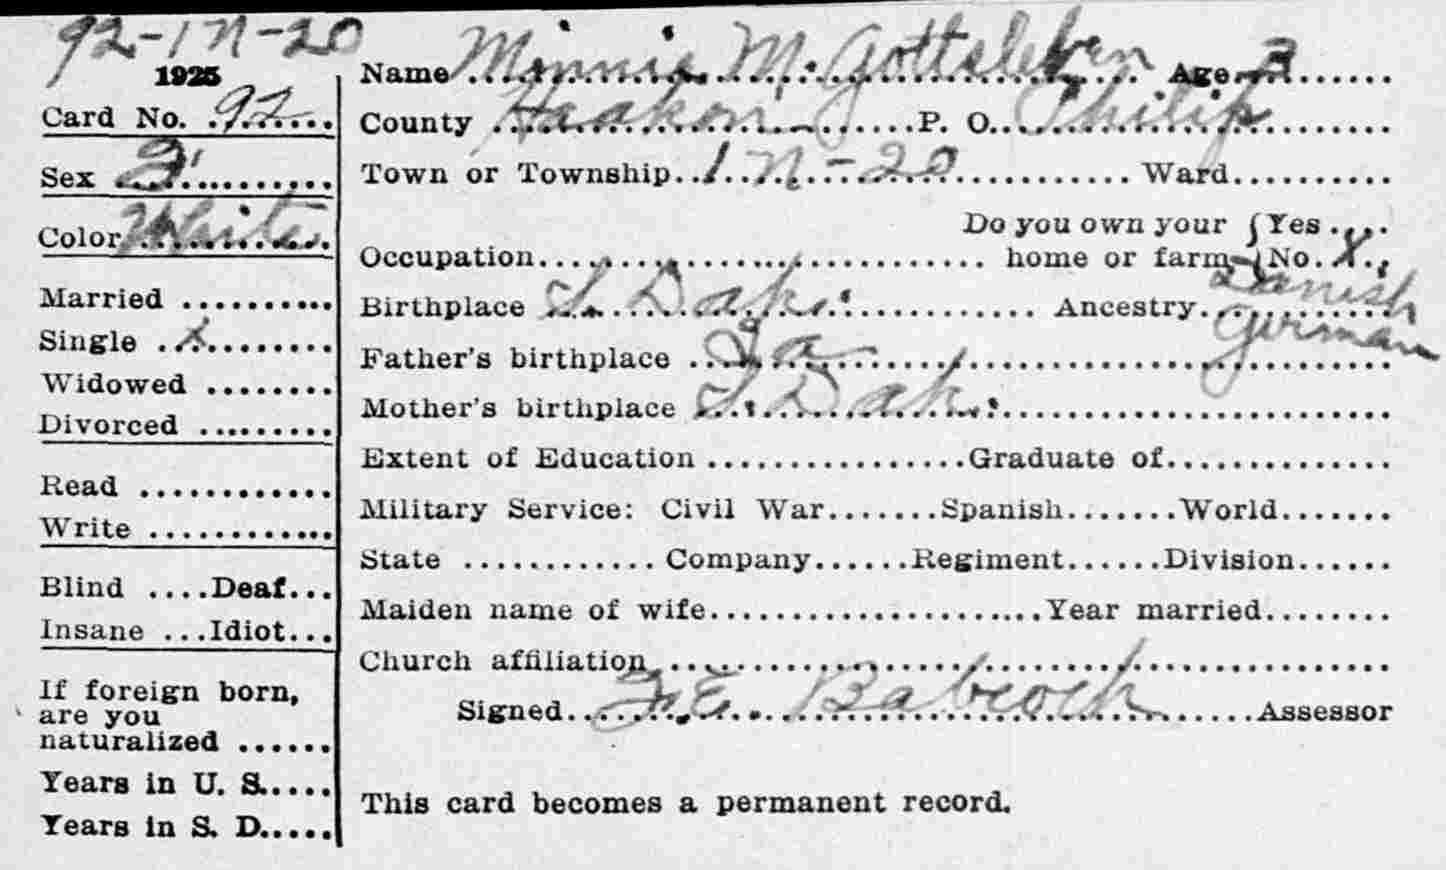 92-1N-20
1925
Card No. 92
Sex F.
Color White
Married
Single x
Widowed
Divorced
Read
Write
Blind .... Deaf...
Insane ... Idiot...
If foreign born,
are you
naturalized ......
Years in U. S.....
Years in S. D.....
Name Minnie M. Gottsleben Age 3
County Haakon P. O. Philip
Town or Township 1 N-20 Ward
Do you own your { Yes ....
Occupation home or farm { No. X
Birthplace S. Dak. Ancestry Danish
German
Father's birthplace Ia
Mother's birthplace S. Dak.
Extent of Education ................Graduate of..............
Military Service: Civil War.......Spanish.......World.......
State ............ Company......Regiment......Division......
Maiden name of wife.....................Year married........
Church affiliation
Signed F. E. Babcock Assessor
This card becomes a permanent record.